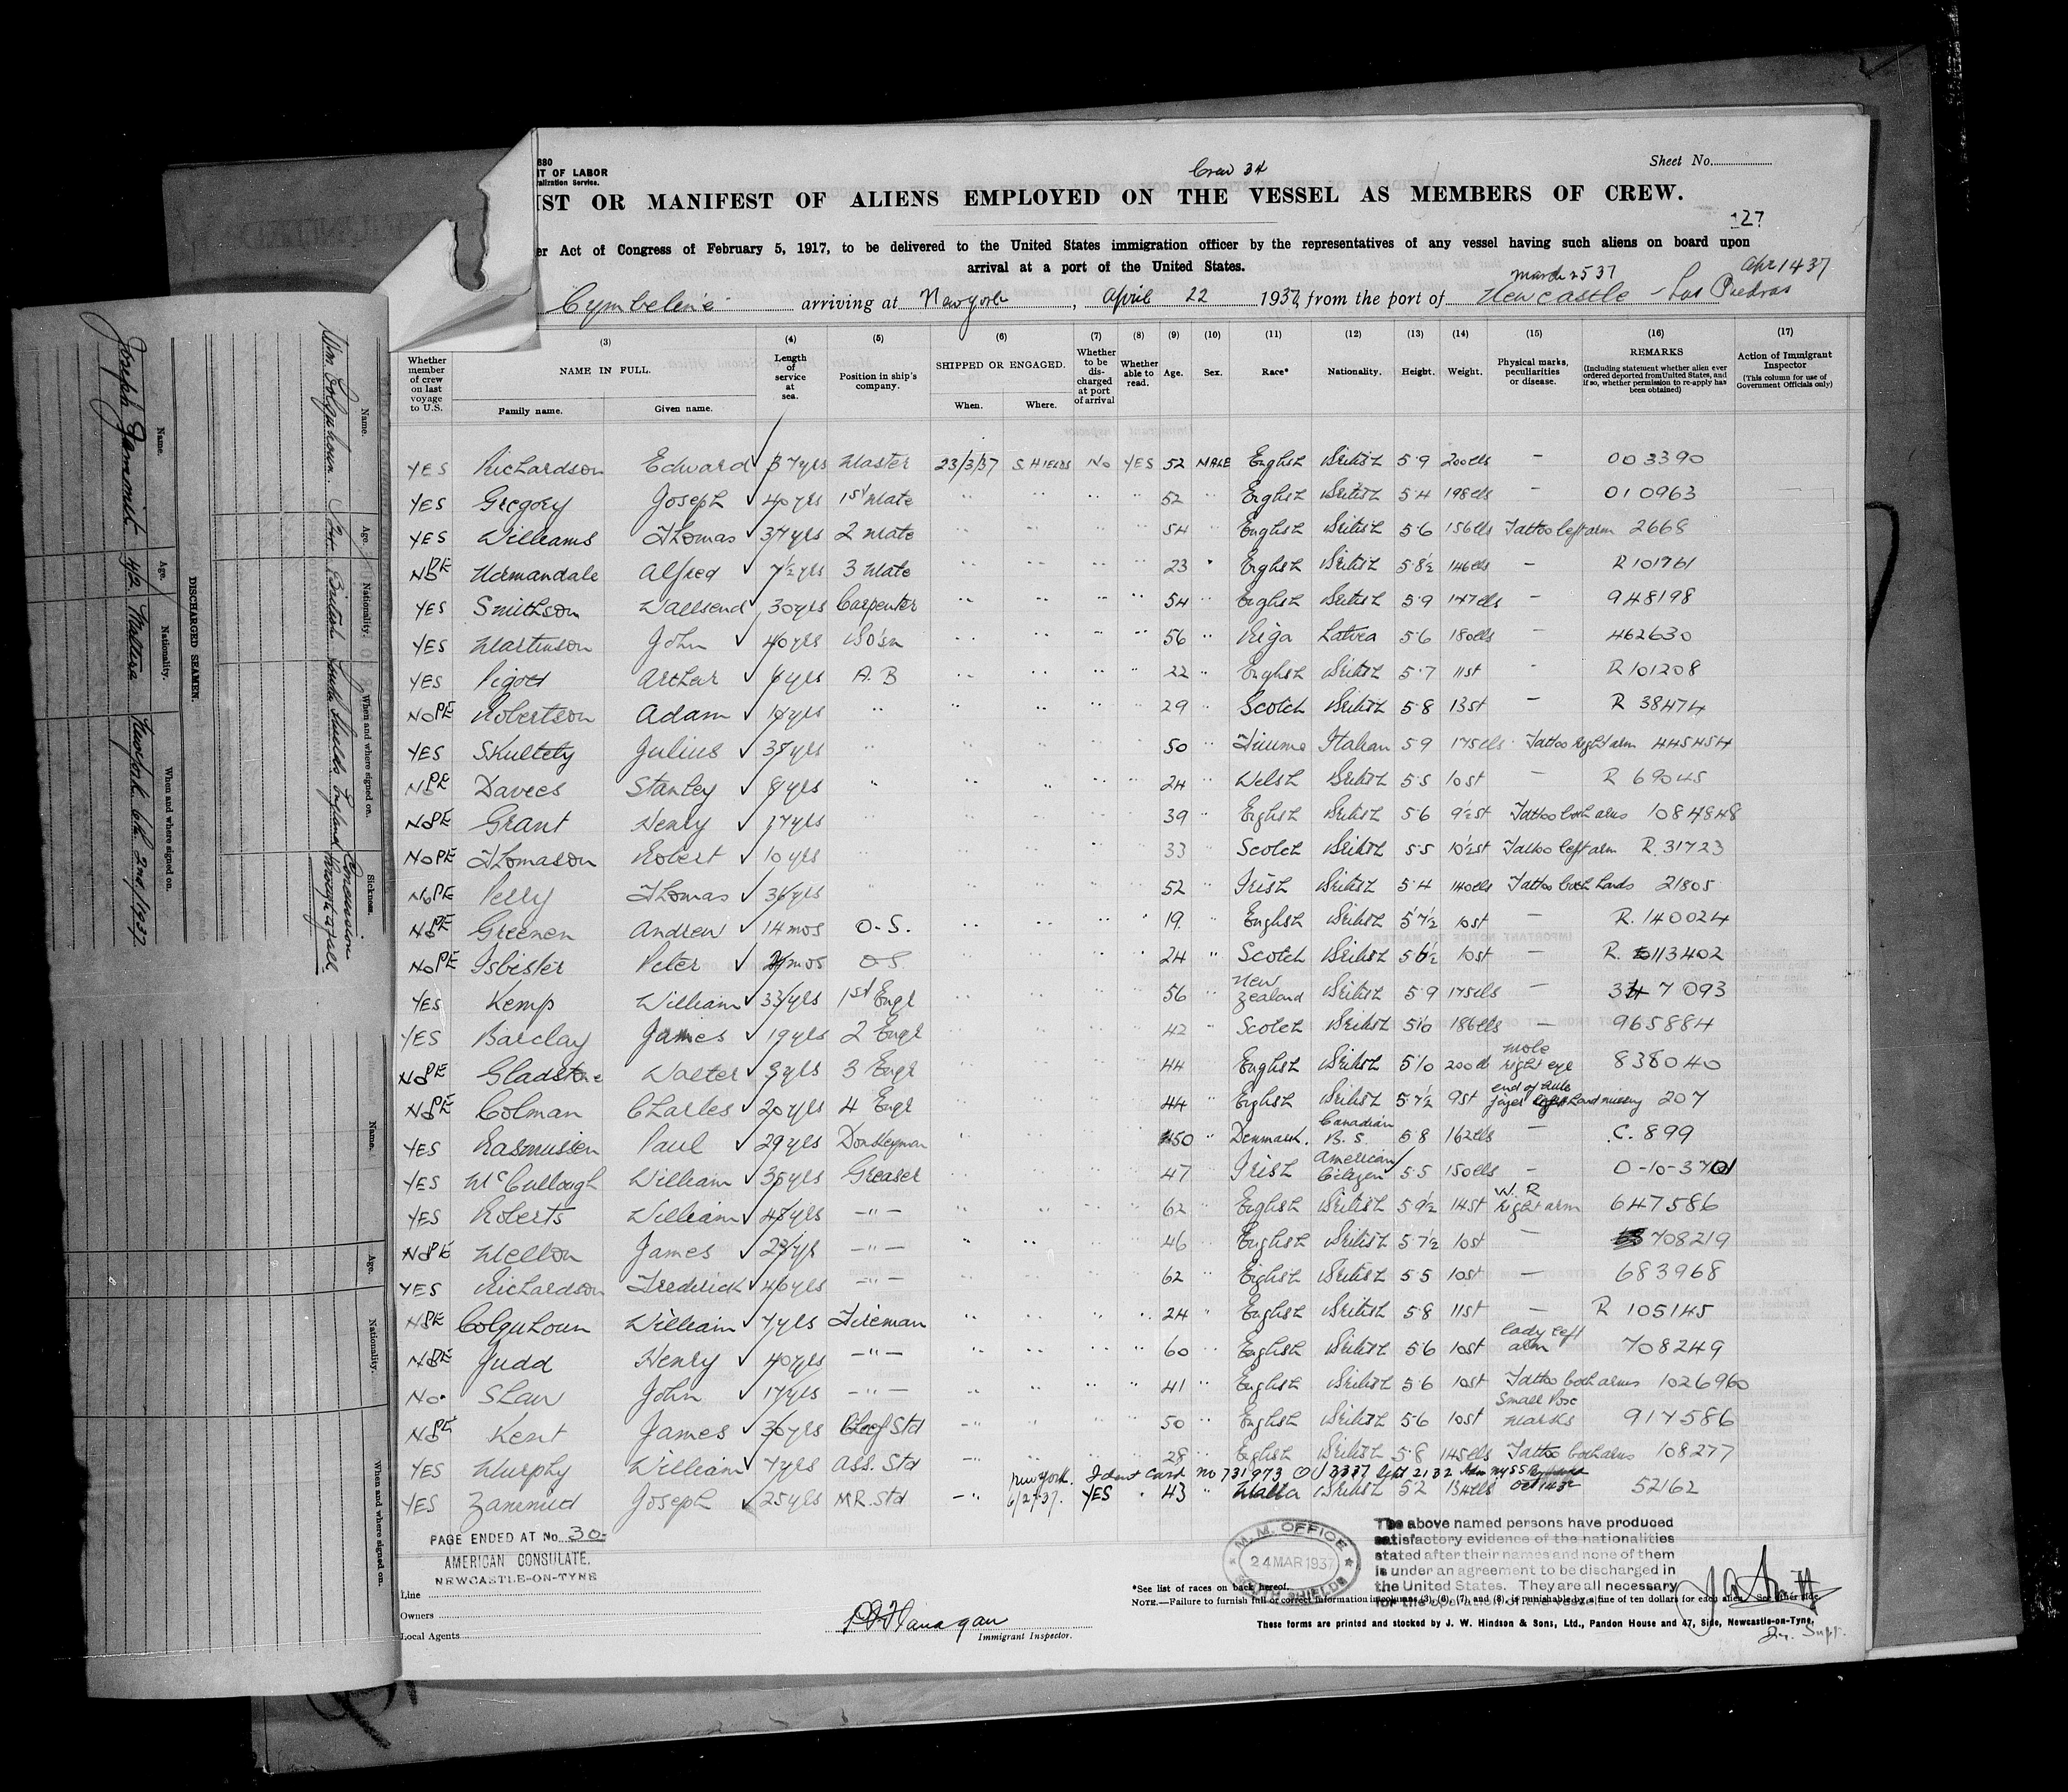 Crew 34
Sheet No.
680
NT OF LABOR
ralization Service.
IST OR MANIFEST OF ALIENS EMPLOYED ON THE VESSEL AS MEMBERS OF CREW.
127
er Act of Congress of February 5, 1917, to be delivered to the United States immigration officer by the representatives of any vessel having such aliens on board upon
arrival at a port of the United States.
March 25 37 Apr 14 37
Cymbeline arriving at New York, April 22 1937, from the port of Newcastle - Las Piedras
(3) (4) (5) (6) (7) (8) (9) (10) (11) (12) (13) (14) (15) (16) (17)
Whether member of crew on last voyage to U.S. NAME IN FULL. Family name. Given name. Length of service at sea. Position in ship's company. SHIPPED OR ENGAGED. When. Where. Whether to be discharged at port of arrival Whether able to read. Age. Sex. Race* Nationality. Height. Weight. Physical marks, peculiarities or disease. REMARKS (Including statement whether alien ever ordered deported from United States, and if so, whether permission to re-apply has been obtained) Action of Immigrant Inspector (This column for use of Government Officials only)
YES Richardson Edward 37yrs Master 23/3/37 S. HIELDS No YES 52 MALE English British 5.9 200lls - 003390
YES Gregory Joseph 40yrs 1st Mate " " " " 52 " English British 5.4 198lls - 010963
YES Williams Thomas 37yrs 2 Mate " " " " 54 " English British 5.6 156lls Tattoo left arm 2668
No PE Normandale Alfred 7½yrs 3 Mate " " " " 23 " English British 5.8½ 146lls - R101761
YES Smithson Wallsend 30yrs Carpenter " " " " 54 " English British 5.9 147lls - 948198
YES Martinson John 40yrs Bo'sn " " " " 56 " Riga Latvia 5.6 180lls - 462630
YES Pigott Arthur 6yrs A.B " " " " 22 " English British 5.7 11st - R101208
No PE Robertson Adam 14yrs " " " " " 29 " Scotch British 5.8 13st - R 38474
YES Skultety Julius 37yrs " " " " " 50 " Fiume Italian 5 9 175lls Tattoo Right arm 445454
No PE Davies Stanley 8yrs " " " " " 24 " Welsh British 5.5 10st - R 69045
No PE Grant Henry 17yrs " " " " " 39 " English British 5.6 9½st Tattoo both arms 1084848
No PE Thomason Robert 10yrs " " " " " 33 " Scotch British 5.5 10½st Tattoo left arm R.31723
No PE Pelly Thomas 36yrs " " " " " 52 " Irish British 5.4 140lls Tattoo both hands 21805
No PE Greenen Andrew 14mos O.S. " " " " 19 " English British 5'7½ 10st - R.140024
No PE Isbister Peter mos O S " " " " 24 " Scotch British 5 6½ 10st - R. 113402
YES Kemp William 33yrs 1st Engr " " " " 56 " New Zealand British 5.9 175lls - 347093
YES Barclay James 19yrs 2 Engr " " " " 42 " Scotch British 5.10 186lls - 965884
No PE Gladstone Walter 9yrs 3 Engr " " " " 44 " English British 5.10 200lb mole right eye 838040
No PE Colman Charles 20yrs 4 Engr " " " " 44 " English British 5.7½ 9st end of little finger hand missing 207
YES Rasmussen Paul 29yrs Donkeyman " " " " 50 " Denmark. Canadian B.S. 5.8 162lls - C. 899
YES McCullough William 35yrs Greaser " " " " 47 " Irish American Citizen 5.5 150lls - 0-10-3701
YES Roberts William 48yrs -"- " " " " 62 " English British 5 9½ 14st W.R Right arm 647586
No PE Mellon James 23yr -"- " " " " 46 " English British 5.7½ 10st - 708219
YES Richardson Frederick 46yrs -"- " " " " 62 " English British 5.5 10st - 683968
No PE Colquhoun William 7yrs Fireman " " " " 24 " English British 5.8 11st - R 105145
No PE Judd Henry 40yrs -"- " " " " 60 " English British 5.6 10st lady left arm 708249
No. Shaw John 17yrs -"- " " " " 41 " English British 5.6 10st Tattoo both arms 1026960
No PE Kent James 36yrs Chief Std -" " " " 50 " English British 5.6 10st Small Pox Marks 917586
YES Murphy William 7yrs Ass. Std -" " " " 28 " English British 5.8 145lls Tattoo both arms 108277
New York. Ident Card No 731973
YES Zammit Joseph 25yrs MR. Std -" 6/27-37. YES " 43 " Malta British 5 2 134lls 52162
PAGE ENDED AT No. 30-
AMERICAN CONSULATE.
NEWCASTLE-ON-TYNE
Line
Owners
Local Agents
Immigrant Inspector.
M.M. OFFICE
24 MAR 1937
SOUTH SHIELDS
The above named persons have produced
satisfactory evidence of the nationalities
stated after their names and none of them
is under an agreement to be discharged in
the United States. They are all necessary
for the operation of the vessel.
*See list of races on back hereof.
NOTE.—Failure to furnish full or correct information in columns (3), (6), (7), and (8) is punishable by a fine of ten dollars for each alien. See other side.
These forms are printed and stocked by J. W. Hindson & Sons, Ltd., Pandon House and 47, Side, Newcastle-on-Tyne.
DISCHARGED SEAMEN.
Name. Age. Nationality. When and where signed on. Sickness.
Wm. Colquhoun. 24. British South Shields England Concussion through a fall
Name. Age. Nationality. When and where signed on.
Joseph 42. Maltese New York 2nd/1937
Name. Age. Nationality. When and where signed on.